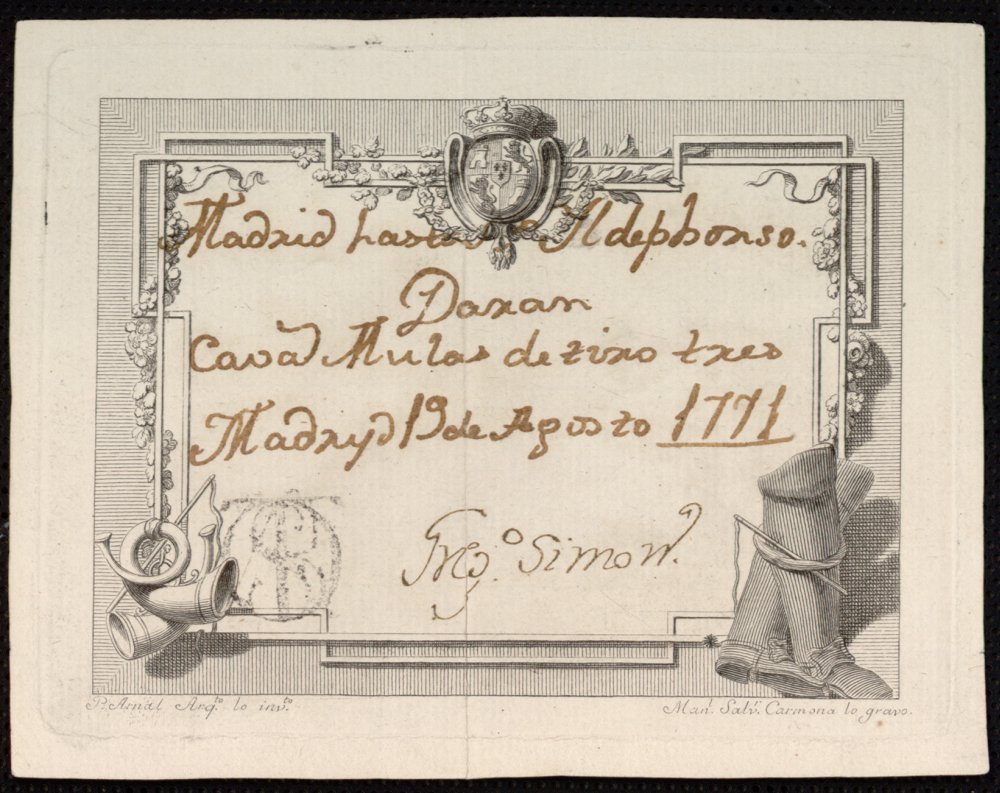 Madrid hasta Sn Ildephonso.
Daran
Cava Mulas de tiro tres
Madryd 19 de Agosto 1771
Grego. Simon.
P. Arnal Arqto. lo invto.
Manl. Salvr. Carmona lo gravo.